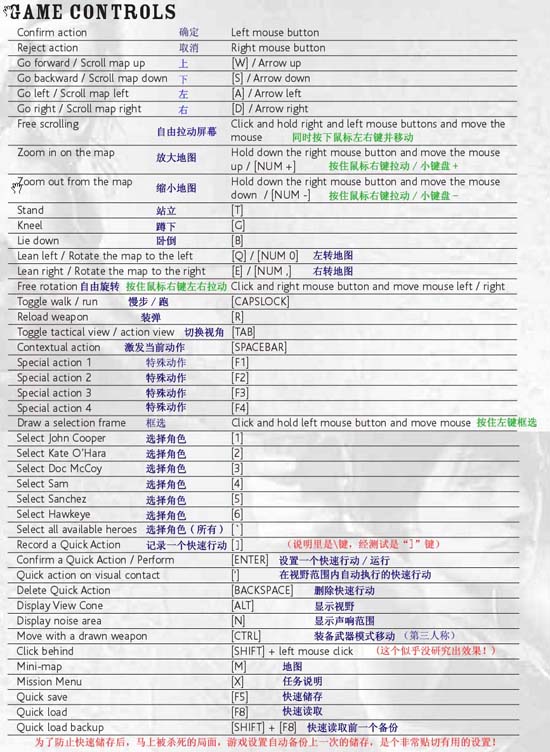 GAME CONTROLS
Confirm action 确定 Left mouse button
Reject action 取消 Right mouse button
Go forward / Scroll map up 上 [W] / Arrow up
Go backward / Scroll map down 下 [S] / Arrow down
Go left / Scroll map left 左 [A] / Arrow left
Go right / Scroll map right 右 [D] / Arrow right
Free scrolling 自由拉动屏幕 Click and hold right and left mouse buttons and move the
mouse 同时按下鼠标左右键并移动
Zoom in on the map 放大地图 Hold down the right mouse button and move the mouse
up / [NUM +] 按住鼠标右键拉动／小键盘＋
Zoom out from the map 缩小地图 Hold down the right mouse button and move the mouse
down / [NUM -] 按住鼠标右键拉动／小键盘－
Stand 站立 [T]
Kneel 蹲下 [G]
Lie down 卧倒 [B]
Lean left / Rotate the map to the left [Q] / [NUM 0] 左转地图
Lean right / Rotate the map to the right [E] / [NUM ,] 右转地图
Free rotation 自由旋转 按住鼠标右键左右拉动 Click and right mouse button and move mouse left / right
Toggle walk / run 慢步／跑 [CAPSLOCK]
Reload weapon 装弹 [R]
Toggle tactical view / action view 切换视角 [TAB]
Contextual action 激发当前动作 [SPACEBAR]
Special action 1 特殊动作 [F1]
Special action 2 特殊动作 [F2]
Special action 3 特殊动作 [F3]
Special action 4 特殊动作 [F4]
Draw a selection frame 框选 Click and hold left mouse button and move mouse 按住左键框选
Select John Cooper 选择角色 [1]
Select Kate O'Hara 选择角色 [2]
Select Doc McCoy 选择角色 [3]
Select Sam 选择角色 [4]
Select Sanchez 选择角色 [5]
Select Hawkeye 选择角色 [6]
Select all available heroes 选择角色（所有） [`]
Record a Quick Action 记录一个快速行动 [ ] ] （说明里是\键，经测试是“]”键）
Confirm a Quick Action / Perform [ENTER] 设置一个快速行动／运行
Quick action on visual contact ['] 在视野范围内自动执行的快速行动
Delete Quick Action [BACKSPACE] 删除快速行动
Display View Cone [ALT] 显示视野
Display noise area [N] 显示声响范围
Move with a drawn weapon [CTRL] 装备武器模式移动 （第三人称）
Click behind [SHIFT] + left mouse click （这个似乎没研究出效果！）
Mini-map [M] 地图
Mission Menu [X] 任务说明
Quick save [F5] 快速储存
Quick load [F8] 快速读取
Quick load backup [SHIFT] + [F8] 快速读取前一个备份
为了防止快速储存后，马上被杀死的局面，游戏设置自动备份上一次的储存，是个非常贴切有用的设置！